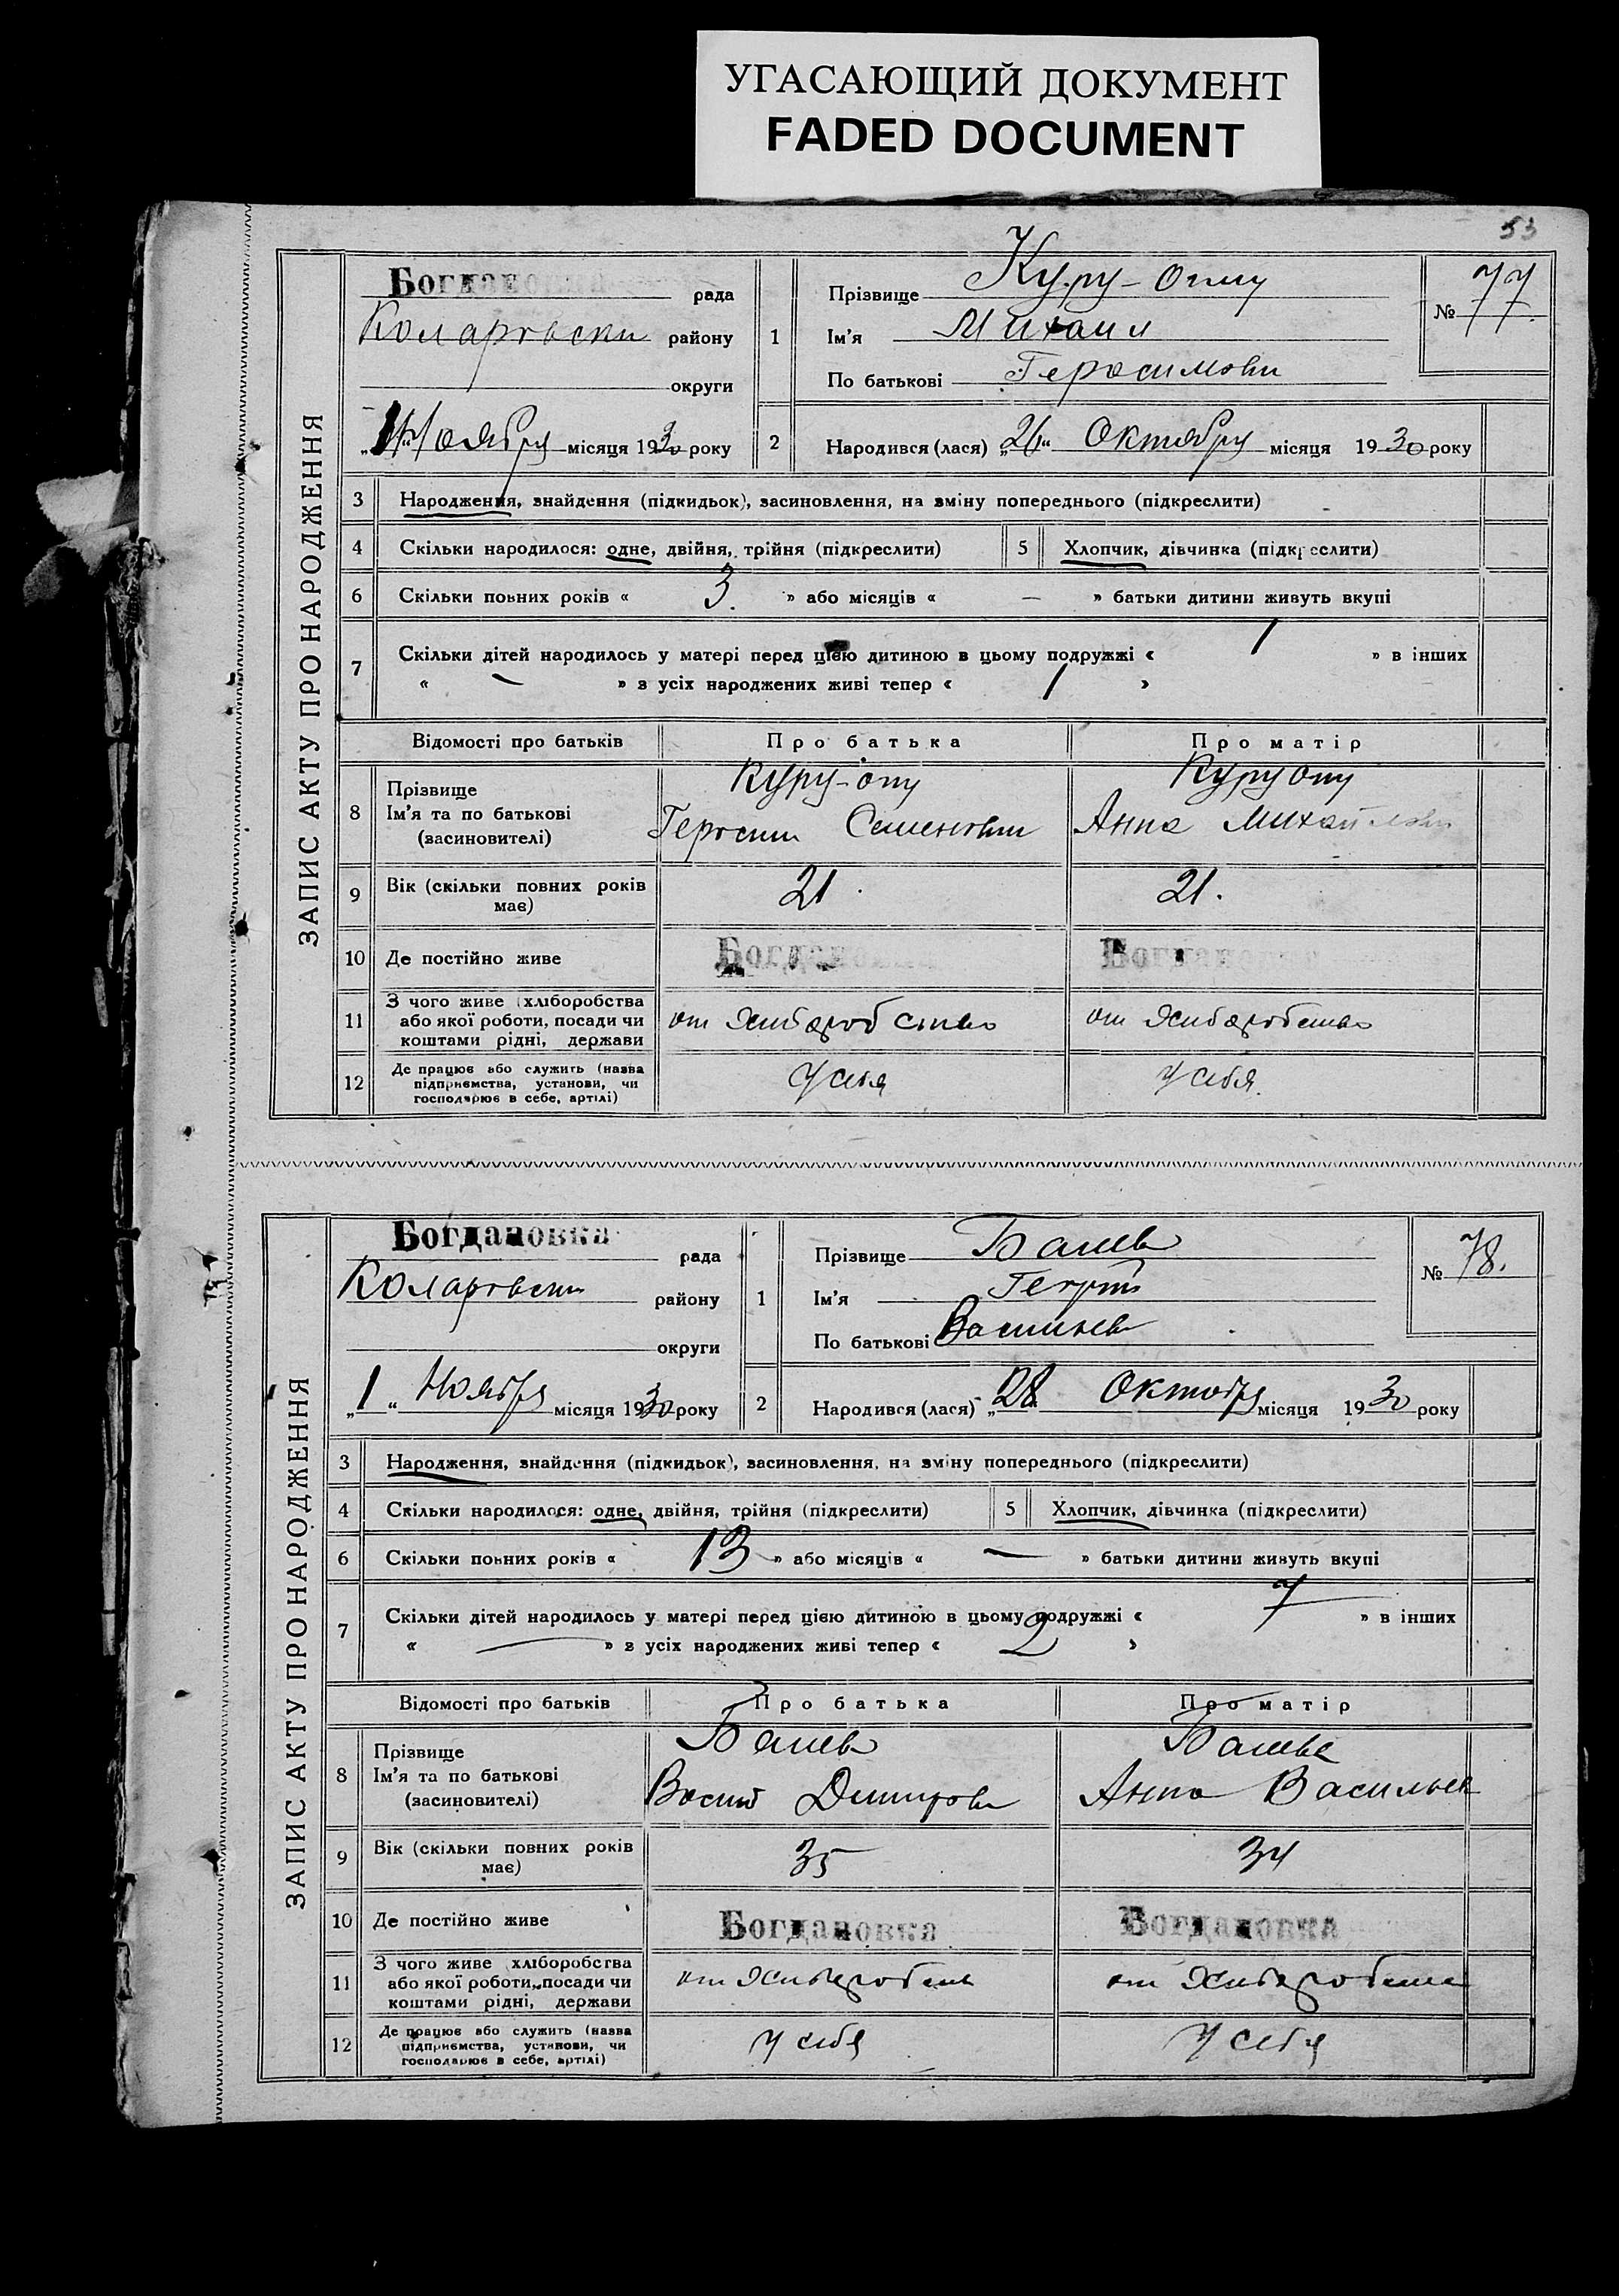 УГАСАЮЩИЙ ДОКУМЕНТ
FADED DOCUMENT
53
ЗАПИС АКТУ ПРО НАРОДЖЕННЯ
Богдановка рада
Коларовски району
округи
„1“ Ноября місяця 1930 року
1
Прізвище Куру-
Ім’я Михаил
По батькові Герасимови
№ 77.
2 Народився (лася) „26“ Октября місяця 1930 року
3 Народження, знайдення (підкидьок), засиновлення, на зміну попереднього (підкреслити)
4 Скільки народилося: одне, двійня, трійня (підкреслити) 5 Хлопчик, дівчинка (підкреслити)
6 Скільки повних років « 3. » або місяців « — » батьки дитини живуть вкупі
7 Скільки дітей народилось у матері перед цією дитиною в цьому подружжі « 1 » в інших
« — » з усіх народжених живі тепер « 1 »
Відомості про батьків Про батька Про матір
8 Прізвище
Ім’я та по батькові
(засиновителі)
Куру-
Герасим Семенович
Анна Михайлови
9 Вік (скільки повних років має) 21. 21.
10 Де постійно живе Богдановка Богдановка
11 З чого живе (хліборобства
або якої роботи, посади чи
коштами рідні, держави
от Хлиборобство от Хлиборобство
12 Де працює або служить (назва
підприємства, установи, чи
господарює в себе, артілі)
у себя у себя
ЗАПИС АКТУ ПРО НАРОДЖЕННЯ
Богдановка рада
Коларовски району
округи
„1“ Ноября місяця 1930 року
1
Прізвище
Ім’я
По батькові Васильев
№ 78.
2 Народився (лася) „28 Октября місяця 1930 року
3 Народження, знайдення (підкидьок), засиновлення, на зміну попереднього (підкреслити)
4 Скільки народилося: одне, двійня, трійня (підкреслити) 5 Хлопчик, дівчинка (підкреслити)
6 Скільки повних років « 13 » або місяців « — » батьки дитини живуть вкупі
7 Скільки дітей народилось у матері перед цією дитиною в цьому подружжі « 7 » в інших
« — » з усіх народжених живі тепер « 2 »
Відомості про батьків Про батька Про матір
8 Прізвище
Ім’я та по батькові
(засиновителі)
Анна Васильев
9 Вік (скільки повних років має) 35 34
10 Де постійно живе Богдановка Богдановка
11 З чого живе (хліборобства
або якої роботи, посади чи
коштами рідні, держави
от от
12 Де працює або служить (назва
підприємства, установи, чи
господарює в себе, артілі)
у себя у себя